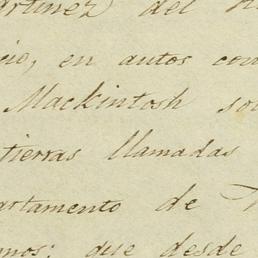 artinez del
cio, en autos con
Mackintosh so
tierras llamadas
artamento de
nos: que desde